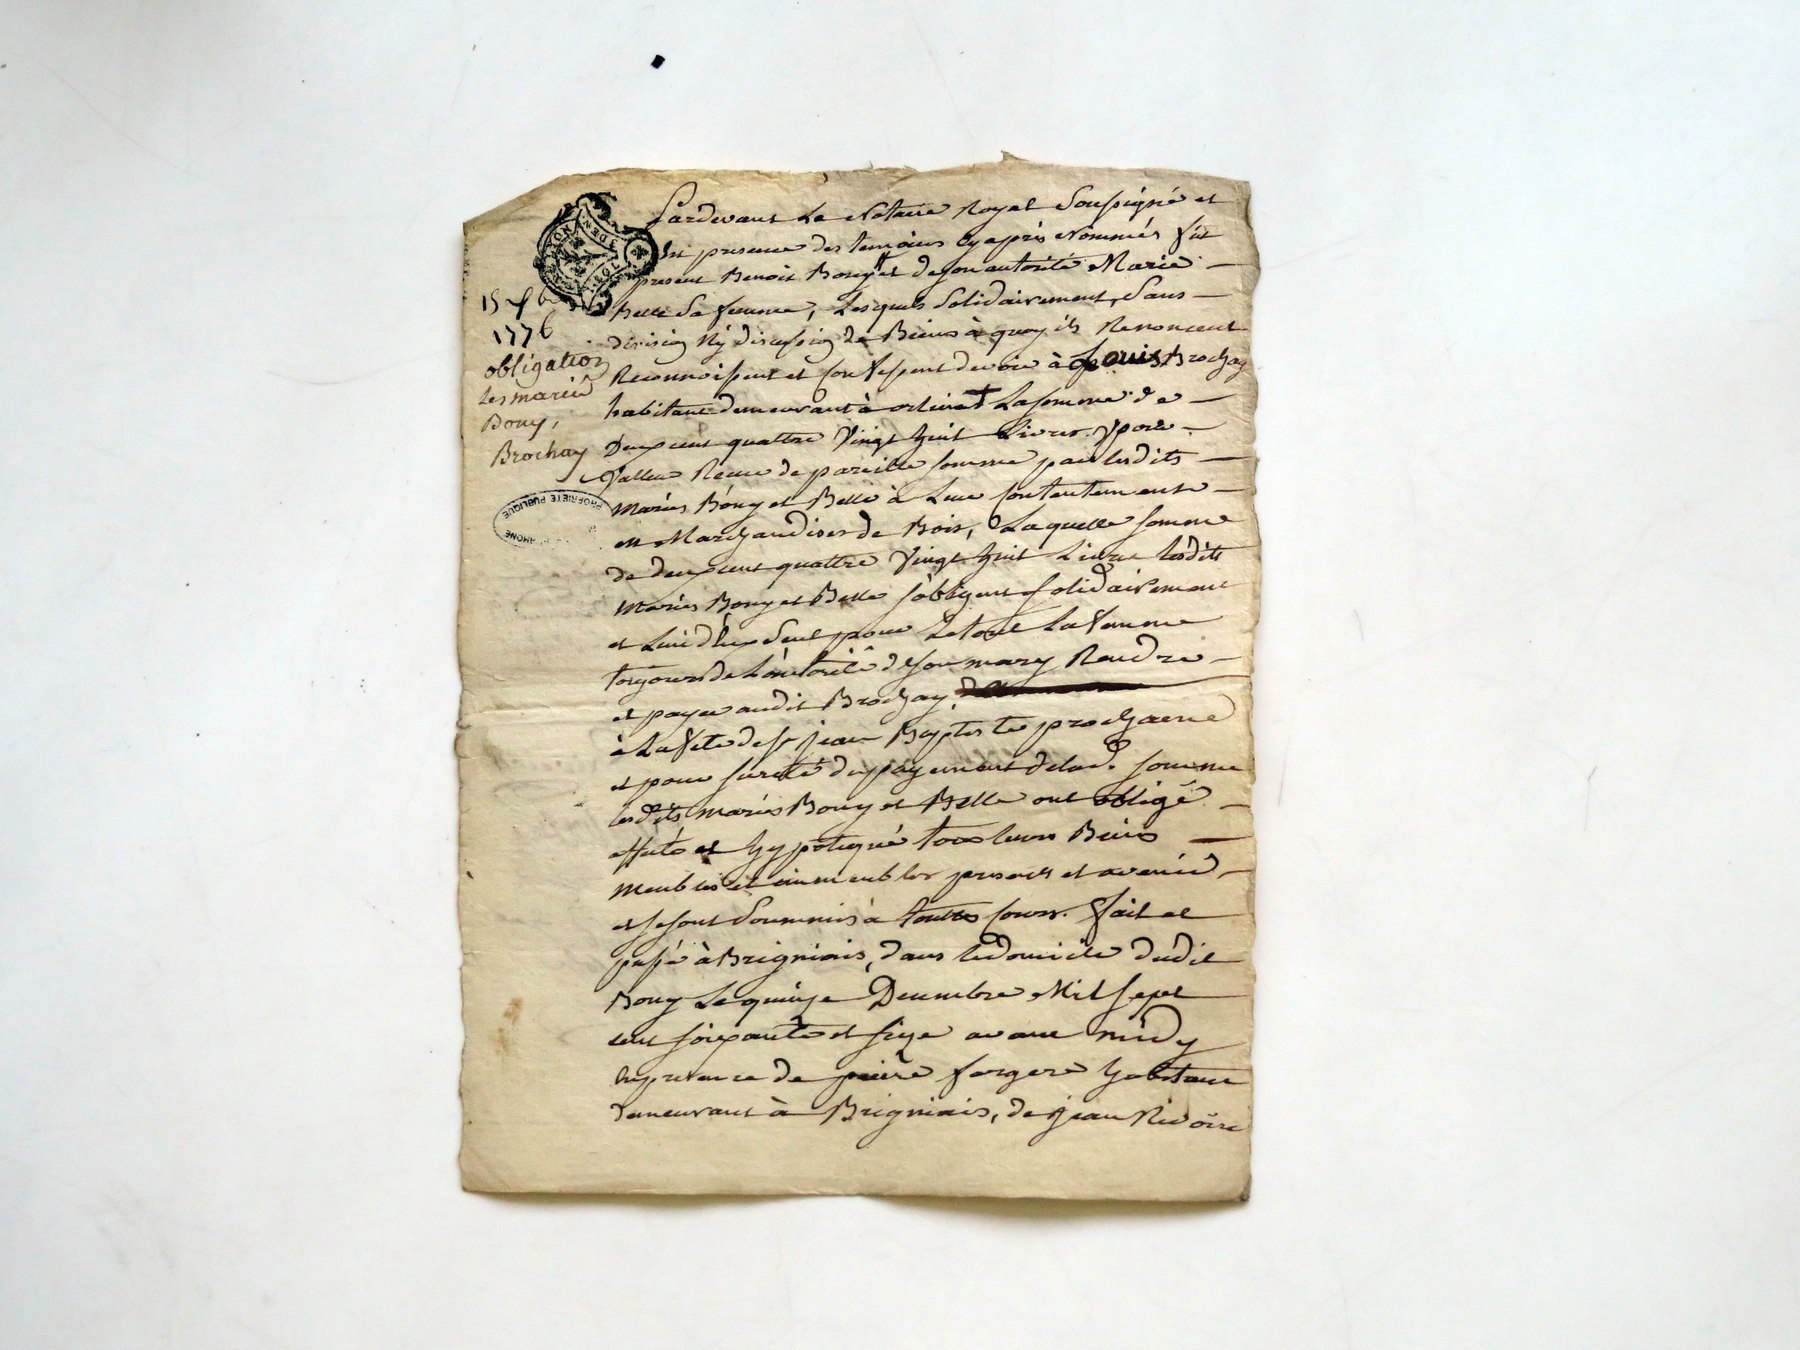 15 xbre
1776
obligation
Les mariés
Bouy,
Brochay
PROPRIETE PUBLIQUE
RHONE
Pardevant Le Notaire Royal Soussigné et
En presence des temoins cy après Nommés fut
present Benoit Bouy et de son autorité Marie
Belle Sa femme, Lesquels Solidairement, Sans
division Ny discussion de Biens à quoy ils Renoncent
Reconnoissent et Confessent devoir à Louis Brochay
habitant demeurant à La somme de
Deux cent quattre Vingt huit Livres pour
Valleur Reçue de pareille somme par lesdits
Mariés Bouy et Belle à Leur Contentement
en Marchandises de Bois, Laquelle somme
de deux cent quattre Vingt huit Livres lesdits
Mariés Bouy et Belle s'obligent solidairement
et L'un d'eux Seul pour Le tout La femme
toujours de L'autorité de son mary Rendre
et payer audit Brochay,
à La fete de St jean Baptiste prochaine
et pour sureté du payement de lad. somme
lesdits mariés Bouy et Belle ont obligé
affecté et hypotequé tous leurs Biens
Meubles et immeubles presents et avenir
et se sont Soummis à toutes Cours. fait et
passé à Brigniais, dans le domicile dudit
Bouy Le quinze Decembre Mil sept
cent soixante et seize avant midy
En presence de pierre forgere habitant
demeurant à Brigniais, de jean Rivoire